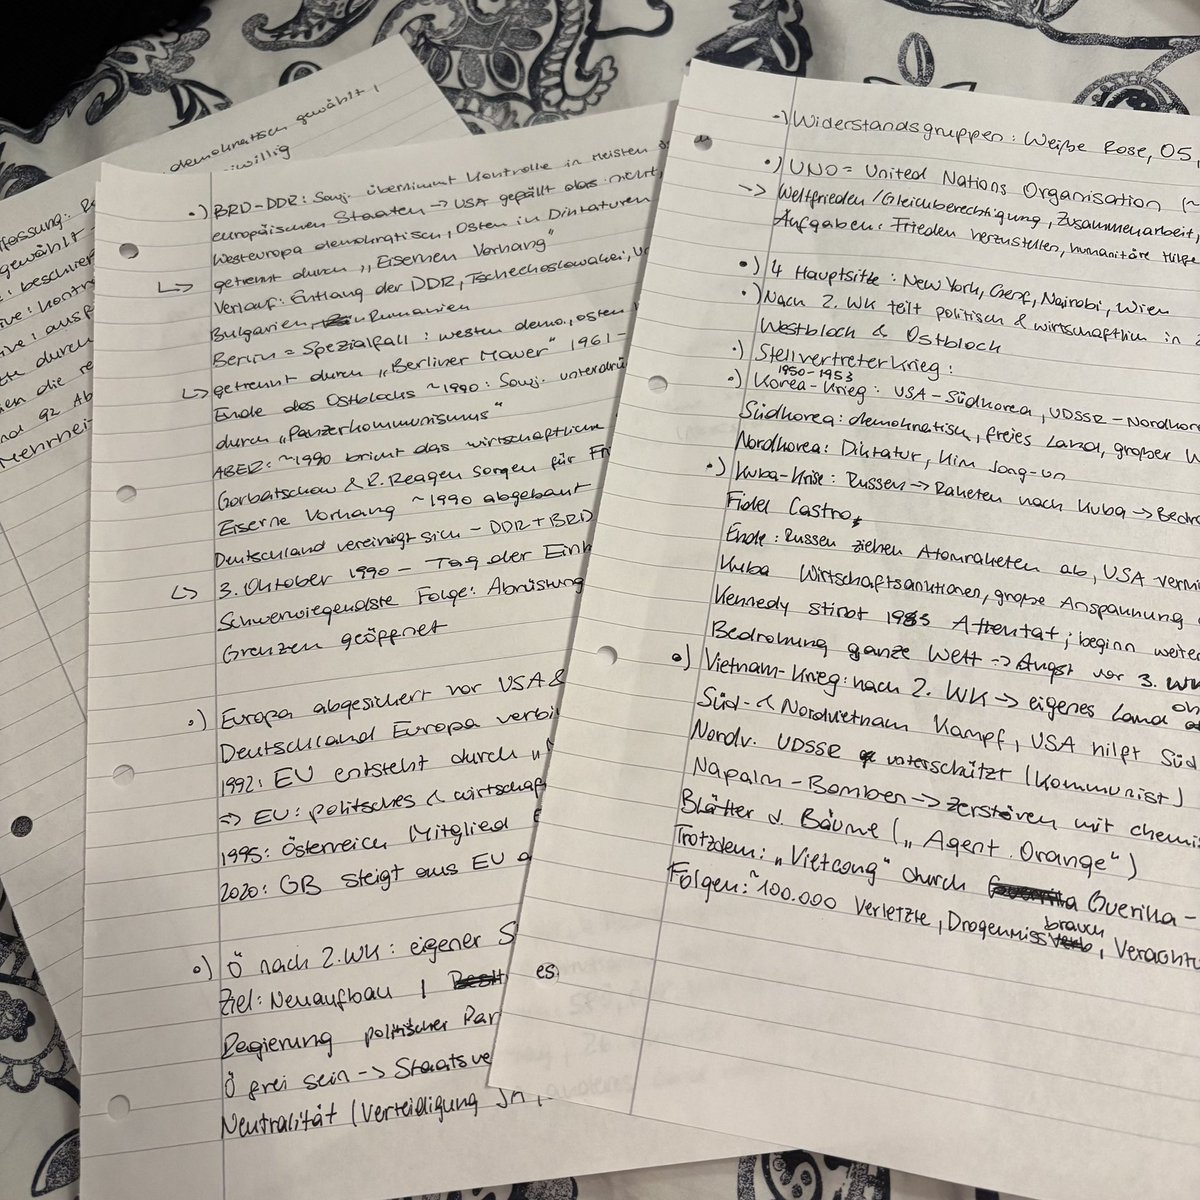 demokratisch gewählt,
iwillig
fassung:
gewählt
: beschlie
ive: Kontr
ive: ausf
te durch
en die re
nd 92 Ab
Mehrheit
•) BRD-DDR: Sowj. übernimmt Kontrolle in meisten
europäischen Staaten -> USA gefällt das nicht,
Westeuropa demokratisch, Osten in Diktaturen
↳ getrennt durch „Eisernen Vorhang"
Verlauf: Entlang der DDR, Tschechoslowakei,
Bulgarien, Rumänien
Berlin = Spezialfall: westen demo., osten
↳ getrennt durch „Berliner Mauer" 1961-
Ende des Ostblocks ~1990: Sowj. unterdrü
durch „Panzerkommunismus"
ABER: ~1990 bricht das wirtschaftliche
Gorbatschow & R. Reagen sorgen für Fr
Eiserne Vorhang ~1990 abgebaut
Deutschland vereinigt sich - DDR + BRD
↳ 3. Oktober 1990 - Tag der Einh
Schwerwiegendste Folge: Abrüstung
Grenzen geöffnet
•) Europa abgesichert vor USA &
Deutschland Europa verbi
1992: EU entsteht durch „
=> EU: politsches & wirtschaf
1995: Österreich Mitglied
2020: GB steigt aus EU a
•) Ö nach 2. WK: eigener S
Ziel: Neuaufbau
Regierung politischer Par
Ö frei sein -> Staatsve
Neutralität (Verteidigung
•) Widerstandsgruppen: Weiße Rose, O5,
•) UNO = United Nations Organisation (~
-> Weltfrieden/Gleichberechtigung, Zusammenarbeit,
Aufgaben: Frieden herzustellen, humanitäre Hilfe
•) 4 Hauptsitze: New York, Genf, Nairobi, Wien
•) Nach 2. WK teilt politisch & wirtschaftlich in 2
Westblock & Ostblock
•) Stellvertreterkrieg:
1950-1953
•) Korea-Krieg: USA-Südkorea, UDSSR-Nordkore
Südkorea: demokratisch, freies Land, großer W
Nordkorea: Diktatur, Kim Jong-un
•) Kuba-Krise: Russen -> Raketen nach Kuba -> Bedro
Fidel Castro,
Ende: Russen ziehen Atomraketen ab, USA vermi
Kuba Wirtschaftsanktionen, große Anspannung
Kennedy stirbt Attentat; beginn weiter
Bedrohung ganze Welt -> Angst vor 3. WK
•) Vietnam-Krieg: nach 2. WK -> eigenes Land
Süd- & Nordvietnam Kampf, USA hilft Süd
Nordv. UDSSR unterschützt (Kommunist)
Napalm-Bomben -> zerstören mit chemi
Blätter & Bäume („Agent Orange")
Trotzdem: „Vietcong" durch Guerilla-
Folgen: ~100.000 Verletzte, Drogenmissbrauch, Verachtu
es